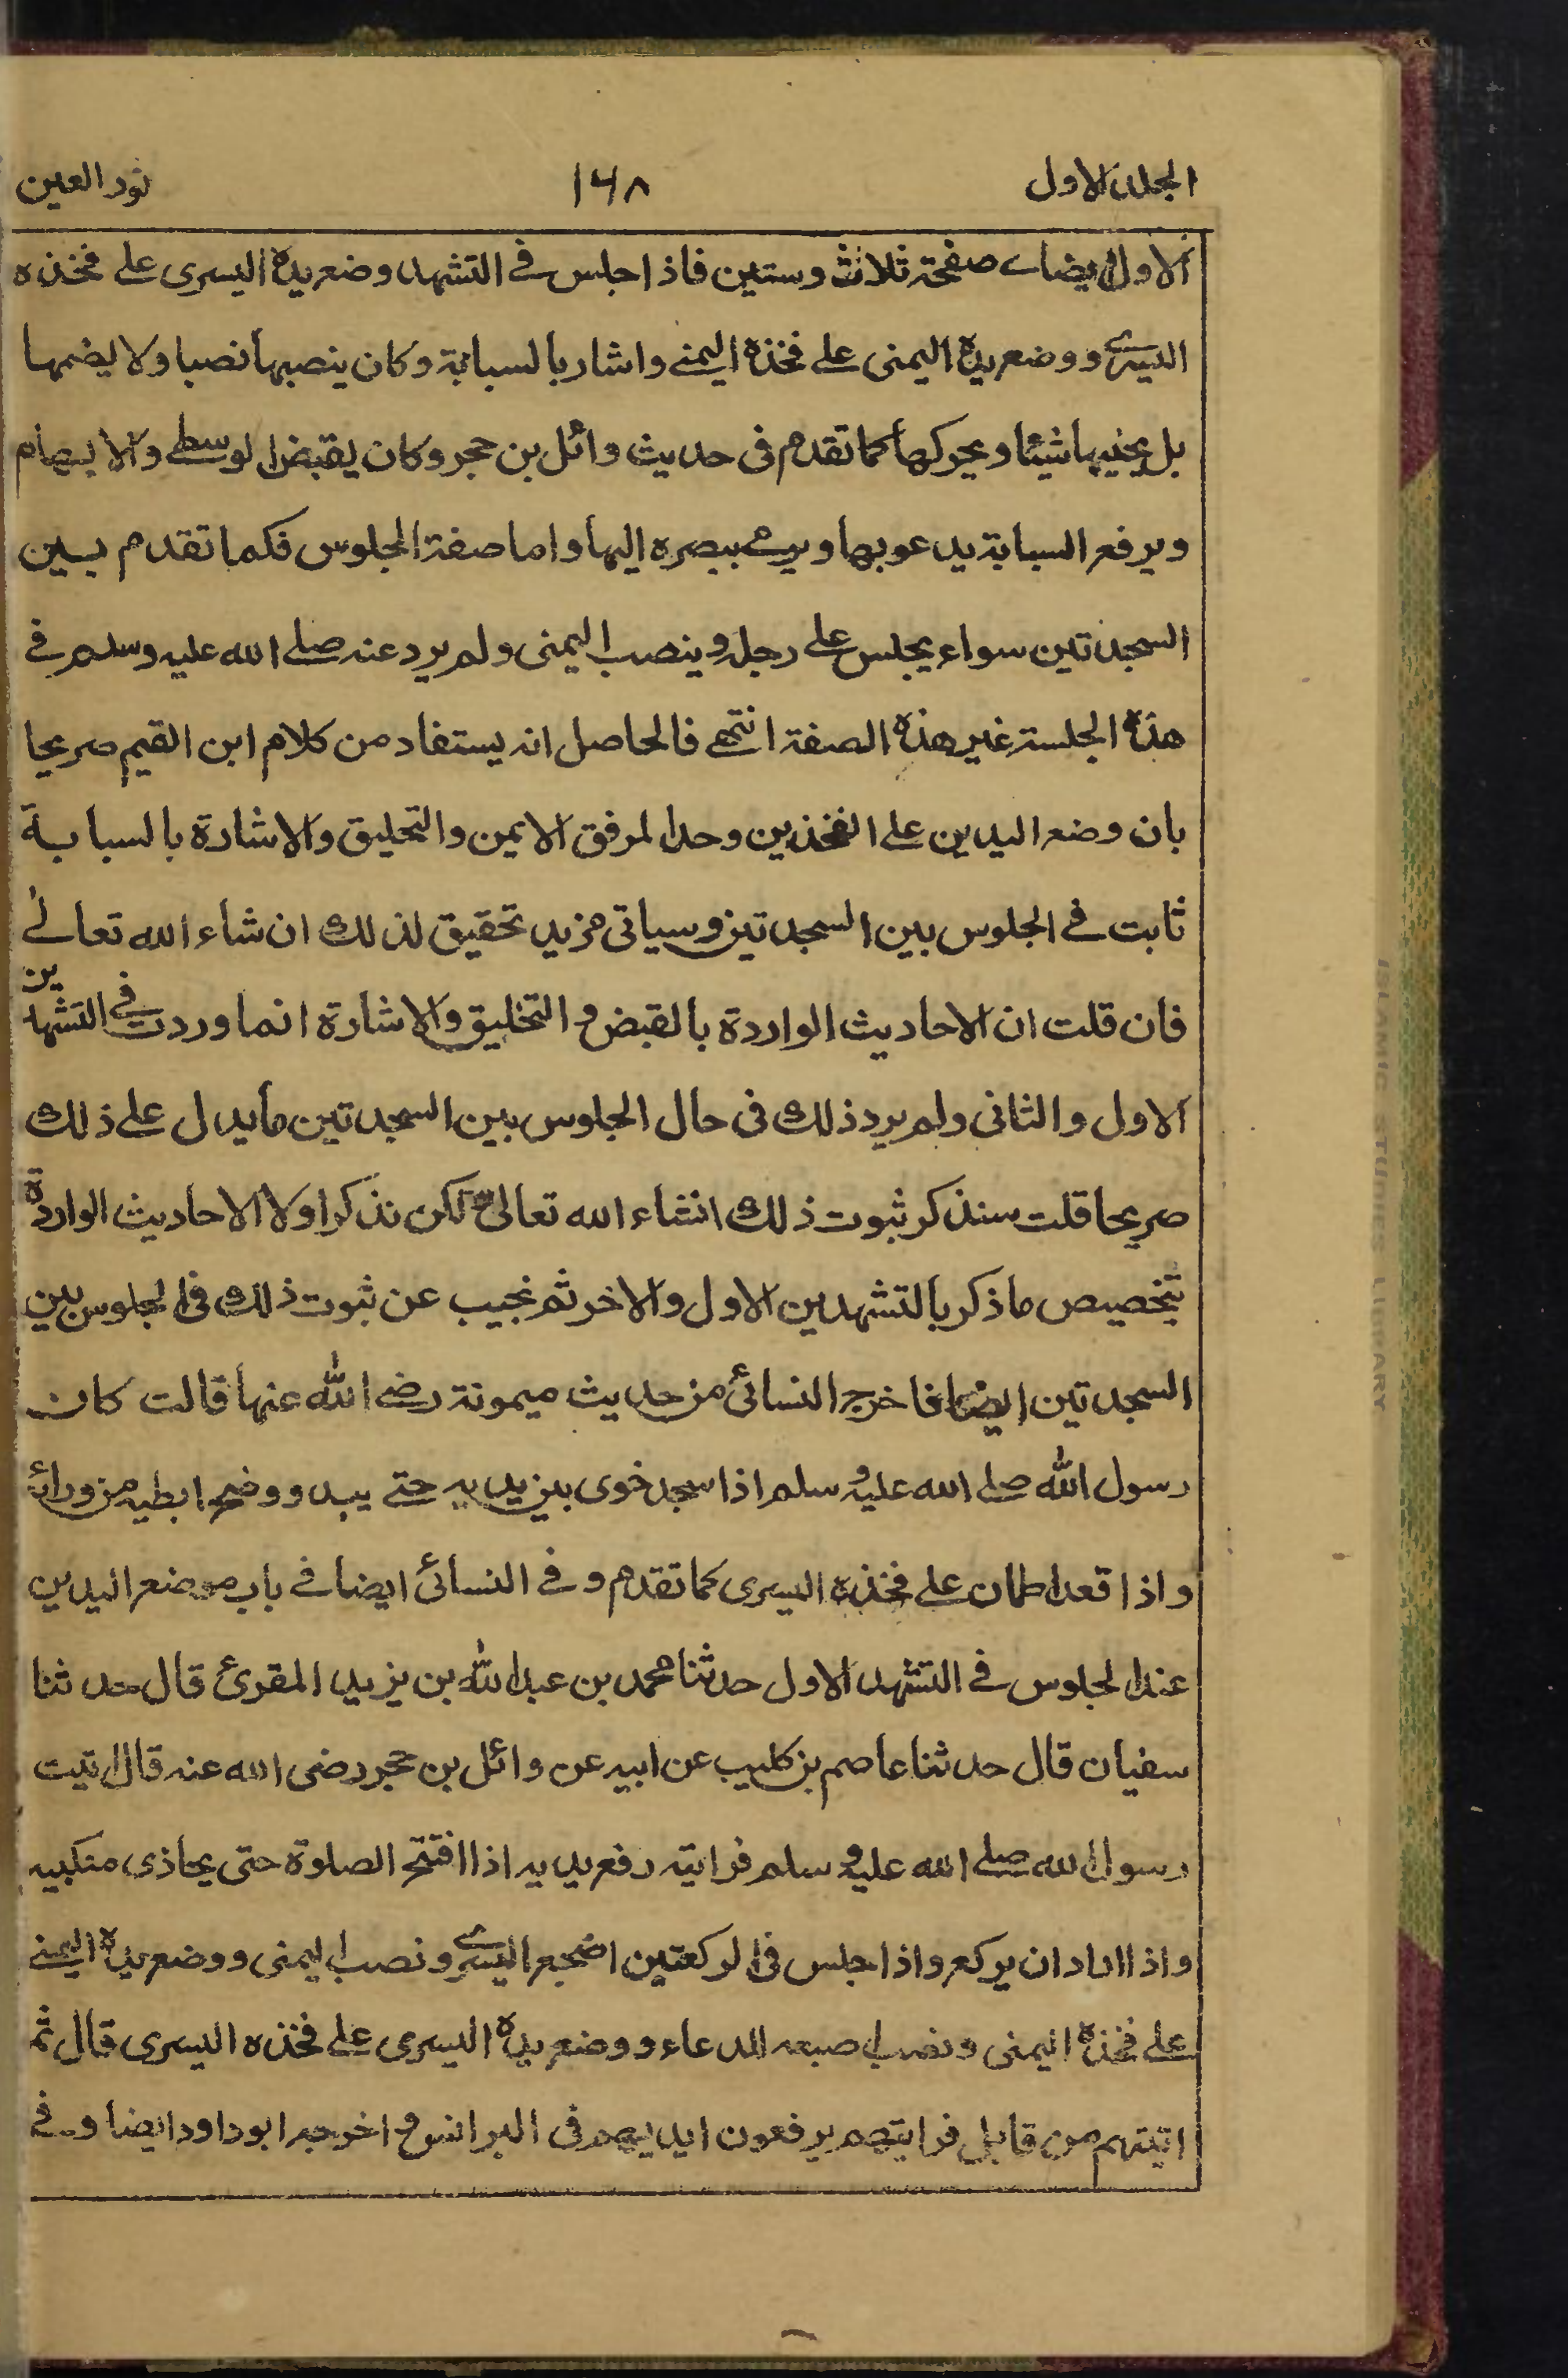 المجلد الاول ١٦٨ نور العين
الاول ايضا صفحة ثلاث وستين فاذا جلس في التشهد وضع يده اليسرى على فخذه
اليسرى ووضع يده اليمنى على فخذه اليمنى واشار بالسبابة وكان ينصبها نصبا ولا يضمها
بل يحنيها شيئا ويحركها كما تقدم فى حديث وائل بن حجر وكان يقبض الوسطى والابهام
ويرفع السبابة يدعو بها ويرمى ببصره اليها واما صفة الجلوس فكما تقدم بين
السجدتين سواء يجلس على رجله وينصب اليمنى ولم يرد عنه صلى الله عليه وسلم في
هذه الجلسة غير هذه الصفة انتهى فالحاصل انه يستفاد من كلام ابن القيم صريحا
بان وضع اليدين على الفخذين وحد المرفق الايمن والتحليق والاشارة بالسبابة
ثابت في الجلوس بين السجدتين وسياتى مزيد تحقيق لذلك ان شاء الله تعالى
فان قلت ان الاحاديث الواردة بالقبض والتحليق والاشارة انما وردت في التشهدين
الاول والثانى ولم يرد ذلك فى حال الجلوس بين السجدتين ما يدل على ذلك
صريحا قلت سنذكر ثبوت ذلك انشاء الله تعالى لكن نذكر اولا الاحاديث الواردة
بتخصيص ما ذكر بالتشهدين الاول والاخر ثم نجيب عن ثبوت ذلك فى الجلوس بين
السجدتين ايضا فاخرج النسائى من حديث ميمونة رضى الله عنها قالت كان
رسول الله صلى الله عليه وسلم اذا سجد خوى بين يديه حتى يبدو وضح ابطيه من ورائه
واذا قعد اطمان على فخذه اليسرى كما تقدم وفى النسائى ايضا في باب موضع اليدين
عند الجلوس في التشهد الاول حدثنا محمد بن عبد الله بن يزيد المقرئ قال حدثنا
سفيان قال حدثنا عاصم بن كليب عن ابيه عن وائل بن حجر رضى الله عنه قال اتيت
رسول الله صلى الله عليه وسلم فرايته رفع يديه اذا افتتح الصلوة حتى يحاذى منكبيه
واذا اراد ان يركع واذا جلس فى الركعتين اضجع اليسرى ونصب اليمنى ووضع يده اليمنى
على فخذه اليمنى ونصب اصبعه للدعاء ووضع يده اليسرى على فخذه اليسرى قال ثم
اتيتهم من قابل فرايتهم يرفعون ايديهم فى البرانس واخرجه ابوداود ايضا وفى